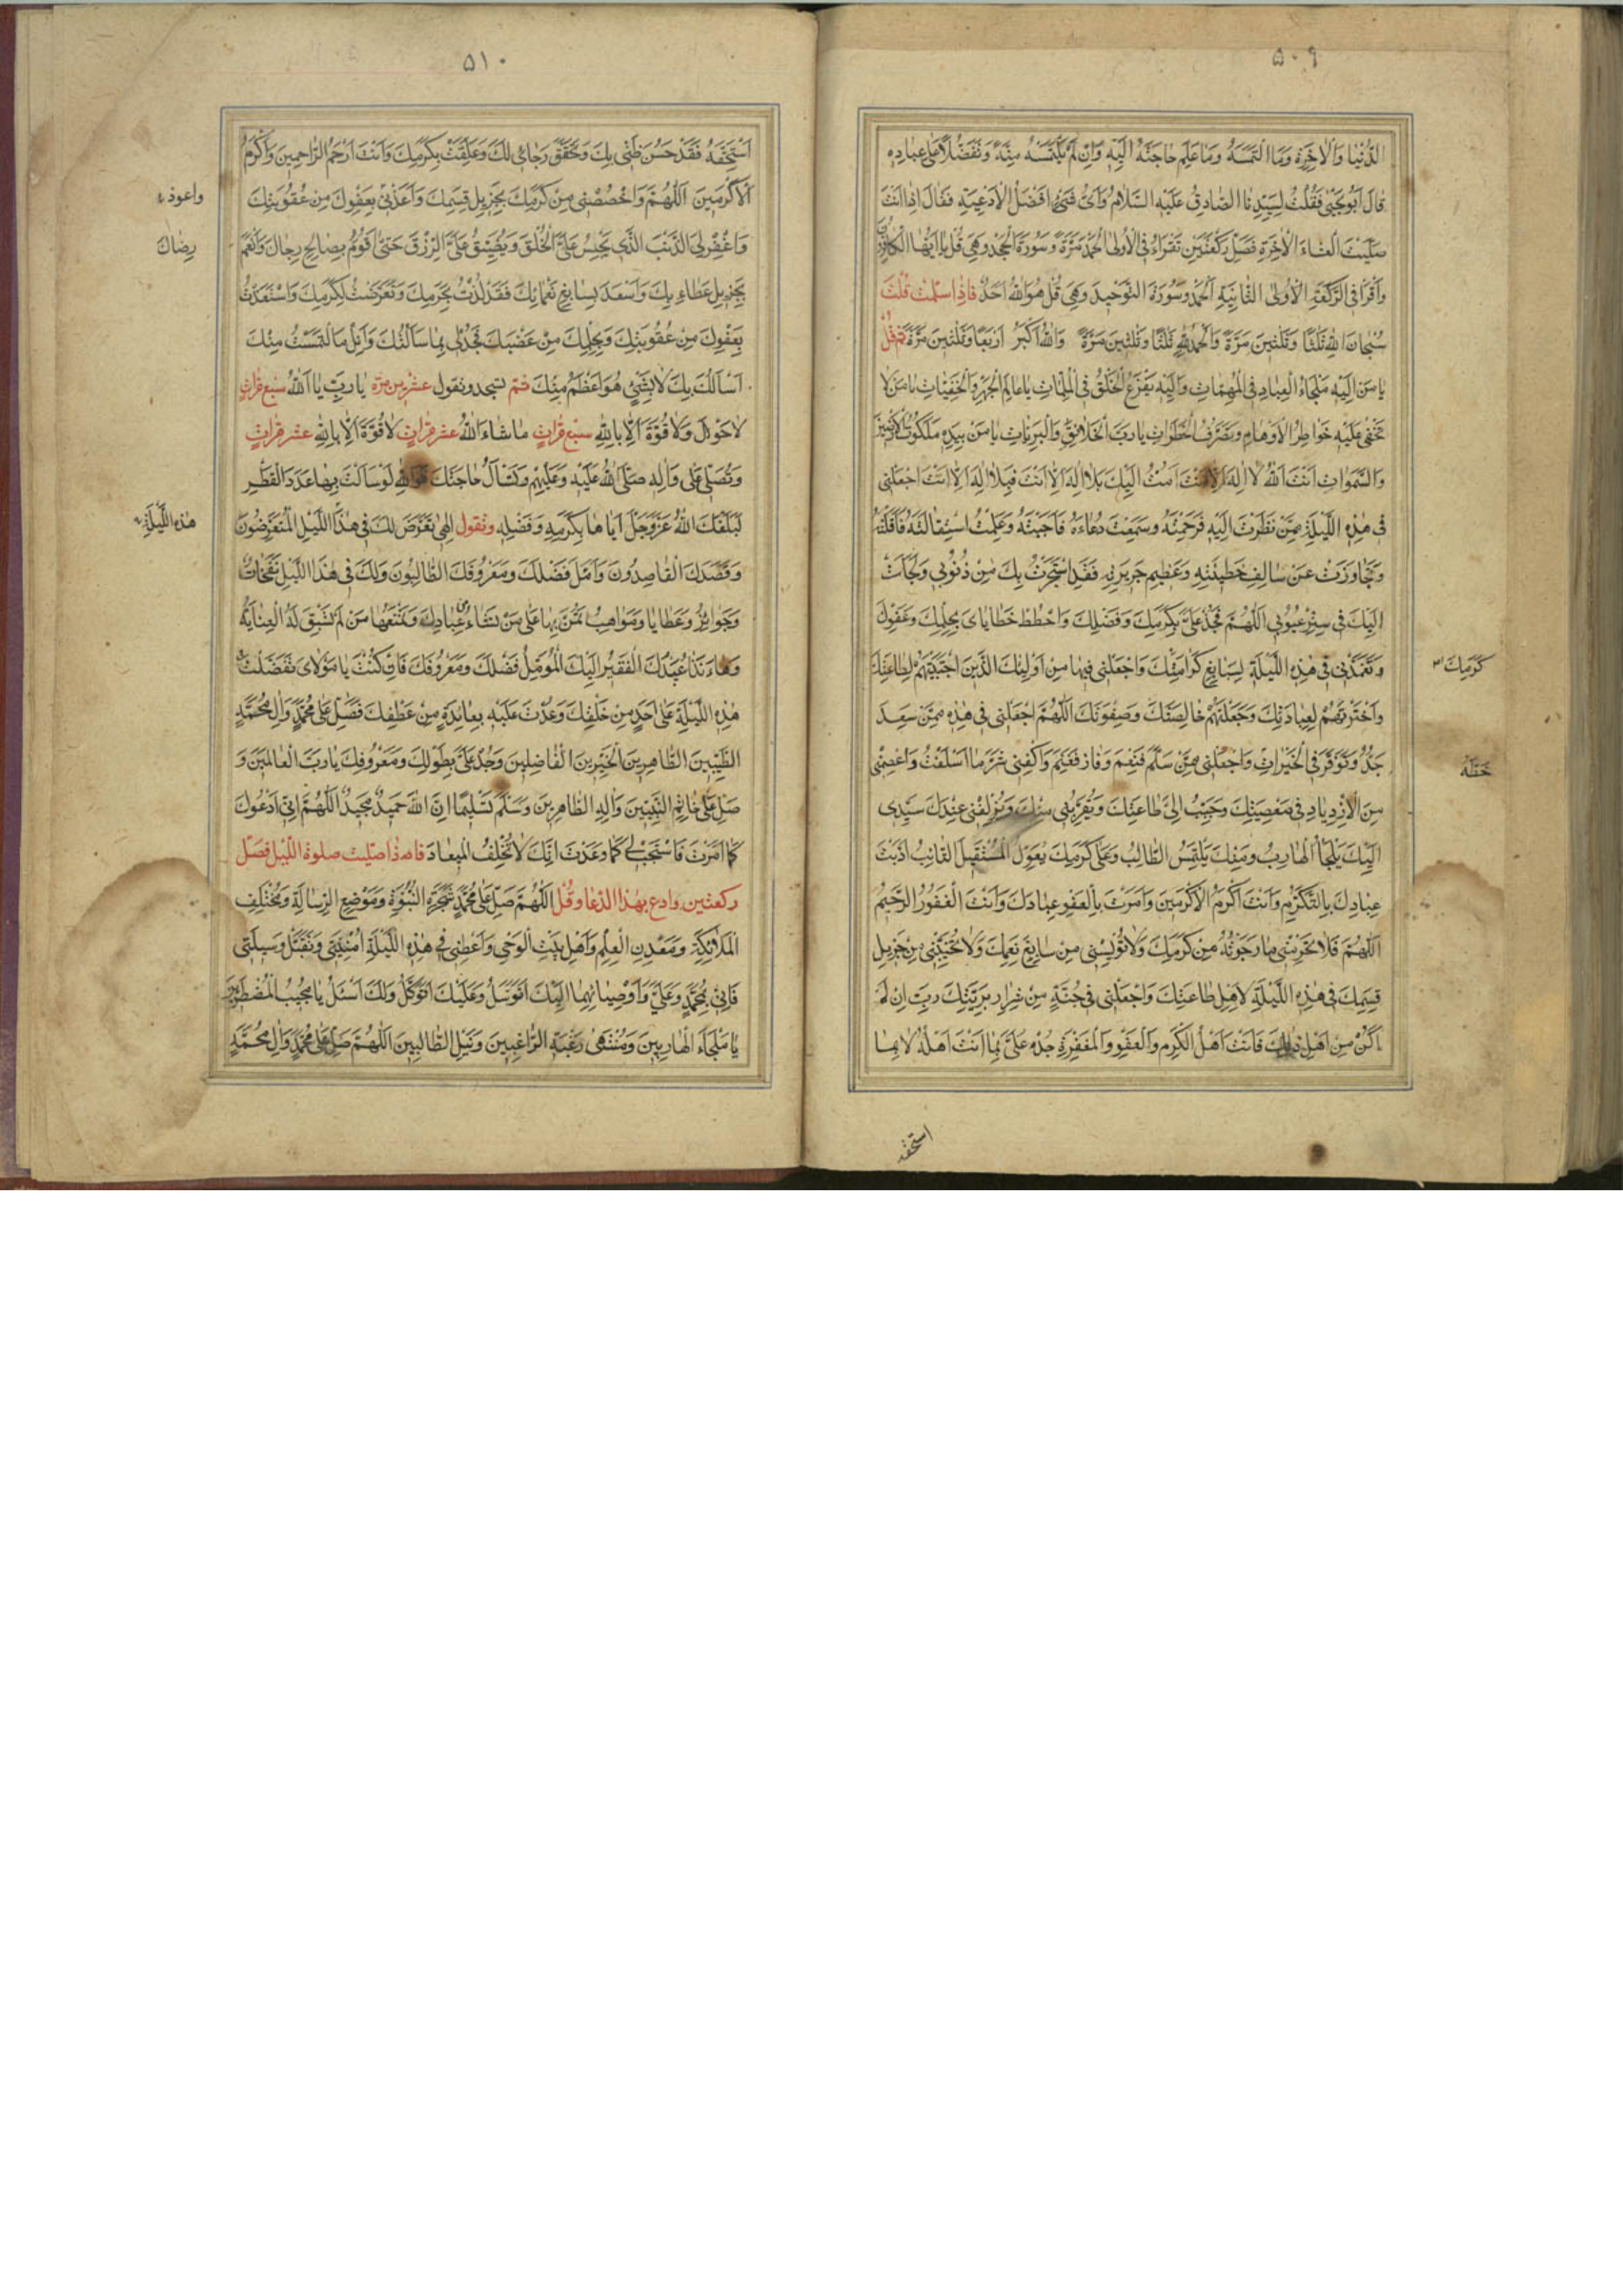 ۵۰۹
الدُّنْيا وَالْاخِرَةِ وَمَا الْتَمَسَهُ وَما عَلِمَ حاجَتَهُ اِلَيْهِ وَاِنْ لَمْ يَلْتَمِسْهُ مِنَّةً وَتَفَضُّلاً عَلى عِبادِهِ
قالَ اَبُو يَحْيى فَقُلْتُ لِسَيِّدِنَا الصّادِقِ عَلَيْهِ السَّلامُ وَاَىُّ شَىْءٍ اَفْضَلُ الْاَدْعِيَةِ فَقالَ اِذا اَنْتَ
صَلَّيْتَ الْعِشاءَ الْاخِرَةِ فَصَلِّ رَكْعَتَيْنِ تَقْرَاءُ فِى الْاُولى اَلْحَمْدَ مَرَّةً وَسُورَةَ الْجَحْدِ وَهِىَ قُلْ يا اَيُّهَا الْكافِرُونَ
وَاقْرَا فِى الرَّكْعَةِ الْاُولى الثّانِيَةِ اَلْحَمْدَ وَسُورَةَ التَّوْحِيدِ وَهِىَ قُلْ هُوَ اللهُ اَحَدٌ فَاِذا سَلَّمْتَ قُلْتَ
سُبْحانَ اللهِ ثَلثًا وَثَلثِينَ مَرَّةً وَالْحَمْدُ لِلّهِ ثَلثًا وَثَلثِينَ مَرَّةً وَاللهُ اَكْبَرُ اَرْبَعًا وَثَلثِينَ مَرَّةً ثم قُلْ
يا مَنْ اِلَيْهِ مَلْجَاءُ الْعِبادِ فِى الْمُهِمّاتِ وَاِلَيْهِ يَفْزَعُ الْخَلْقُ فِى الْمُلِمّاتِ يا عالِمَ الْجَهْرِ وَالْخَفِيّاتِ يا مَنْ لا
تَخْفى عَلَيْهِ خَواطِرُ الْاَوْهامِ وَتَصَرُّفُ الْخَطَراتِ يا رَبَّ الْخَلائِقِ وَالْبَرِيّاتِ يا مَنْ بِيَدِهِ مَلَكُوتُ الْاَرَضِينَ
وَالسَّمواتِ اَنْتَ اللهُ لا اِلهَ اِلاّ اَنْتَ اَمُتُّ اِلَيْكَ بِلا اِلهَ اِلاّ اَنْتَ فَبِلا اِلهَ اِلاّ اَنْتَ اجْعَلْنِى
فِى هذِهِ اللَّيْلَةِ مِمَّنْ نَظَرْتَ اِلَيْهِ فَرَحِمْتَهُ وَسَمِعْتَ دُعاءَهُ فَاَجَبْتَهُ وَعَلِمْتَ اسْتِقالَتَهُ فَاَقَلْتَهُ
وَتَجاوَزْتَ عَنْ سالِفِ خَطِيئَتِهِ وَعَظِيمِ جَرِيرَتِهِ فَقَدِ اسْتَجَرْتُ بِكَ مِنْ ذُنُوبِى وَلَجَاْتُ
اِلَيْكَ فِى سِتْرِ عُيُوبِى اَللّهُمَّ فَجُدْ عَلَىَّ بِكَرَمِكَ وَفَضْلِكَ وَاحْطُطْ خَطاياىَ بِحِلْمِكَ وَعَفْوِكَ
وَتَغَمَّدْنِى فِى هذِهِ اللَّيْلَةِ لِسَابِغِ كَرامَتِكَ وَاجْعَلْنِى فِيها مِنْ اَوْلِيائِكَ الَّذِينَ اجْتَبَيْتَهُمْ لِطاعَتِكَ
كَرَمِكَ
وَاخْتَرْتَهُمْ لِعِبادَتِكَ وَجَعَلْتَهُمْ خالِصَتَكَ وَصَفْوَتَكَ اَللّهُمَّ اجْعَلْنِى فِى هذِهِ مِمَّنْ سَعِدَ
جَدُّهُ وَتَوَفَّرَ فِى الْخَيْراتِ وَاجْعَلْنِى مِمَّنْ سَلِمَ فَنَعِمَ وَفازَ فَغَنِمَ وَاكْفِنِى شَرَّ ما اَسْلَفْتُ وَاعْصِمْنِى
حَظُّهُ
مِنَ الْاِزْدِيادِ فِى مَعْصِيَتِكَ وَحَبِّبْ اِلَىَّ طاعَتَكَ وَيُقَرِّبُنِى مِنْكَ وَيُزْلِفُنِى عِنْدَكَ سَيِّدِى
اِلَيْكَ يَلْجَاُ الْهارِبُ وَمِنْكَ يَلْتَمِسُ الطّالِبُ وَعَلى كَرَمِكَ يُعَوِّلُ الْمُسْتَقِيلُ التّائِبُ اَدَّبْتَ
عِبادِكَ بِالتَّكَرُّمِ وَاَنْتَ اَكْرَمُ الْاَكْرَمِينَ وَاَمَرْتَ بِالْعَفْوِ عِبادَكَ وَاَنْتَ الْغَفُورُ الرَّحِيمُ
اَللّهُمَّ فَلا تَحْرِمْنِى ما رَجَوْتُهُ مِنْ كَرَمِكَ وَلا تُؤْيِسْنِى مِنْ سابِغِ نِعَمِكَ وَلا تُخَيِّبْنِى مِنْ جَزِيلِ
قِسَمِكَ فِى هذِهِ اللَّيْلَةِ لِاَهْلِ طاعَتِكَ وَاجْعَلْنِى فِى جُنَّةٍ مِنْ شِرارِ بَرِيَّتِكَ رَبِّ اِنْ لَمْ
اَكُنْ مِنْ اَهْلِ ذلِكَ فَاَنْتَ اَهْلُ الْكَرَمِ وَالْعَفْوِ وَالْمَغْفِرَةِ جُدْ عَلَىَّ بِما اَنْتَ اَهْلُهُ لا بِما
استحقه
۵۱۰
اَسْتَحِقُّهُ فَقَدْ حَسُنَ ظَنِّى بِكَ وَتَحَقَّقَ رَجائِى لَكَ وَعَلِقَتْ بِكَرَمِكَ وَاَنْتَ اَرْحَمُ الرّاحِمِينَ وَاَكْرَمُ
الْاَكْرَمِينَ اَللّهُمَّ وَاخْصُصْنِى مِنْ كَرَمِكَ بِجَزِيلِ قِسَمِكَ وَاَعِذْنِى بِعَفْوِكَ مِنْ عُقُوبَتِكَ
واعوذ
وَاغْفِرْ لِىَ الذَّنْبَ الَّذِى يَحْبِسُ عَلَىَّ الْخُلُقَ وَيُضَيِّقُ عَلَىَّ الرِّزْقَ حَتّى اَقُومَ بِصالِحِ رِجالِكَ وَاَنْعَمَ
رِضاكَ
بِجَزِيلِ عَطاءِ بِكَ وَاَسْعَدَ بِسابِغِ نَعْمائِكَ فَقَدْ لُذْتُ بِحَرَمِكَ وَتَعَرَّضْتُ لِكَرَمِكَ وَاسْتَعَذْتُ
بِعَفْوِكَ مِنْ عُقُوبَتِكَ وَبِحِلْمِكَ مِنْ غَضَبِكَ فَجُدْ لِى بِما سَاَلْتُكَ وَاَنِلْ مَا الْتَمَسْتُ مِنْكَ
اَسْاَلُكَ بِكَ لا بِشَىْءٍ هُوَ اَعْظَمُ مِنْكَ ثمّ تسجد وتقول عشرين مرّة يا رَبِّ يا اَللهُ سبع مرّاتٍ
لا حَوْلَ وَلا قُوَّةَ اِلاّ بِاللهِ سبع مرّاتٍ ما شاءَ اللهُ عشر مرّاتٍ لا قُوَّةَ اِلاّ بِاللهِ عشر مرّاتٍ
وَتُصَلِّى عَلَى وَآلِهِ صَلَّى اللهُ عَلَيْهِ وَعَلَيْهِمْ وَتَسْاَلُ حاجَتَكَ فَوَاللهِ لَوْ سَاَلْتَ بِها عَدَدَ الْقَطْرِ
لَبَلَّغَكَ اللهُ عَزَّ وَجَلَّ اِيّاها بِكَرَمِهِ وَفَضْلِهِ وتقول اِلهِى تَعَرَّضَ لَكَ فِى هذَا اللَّيْلِ الْمُتَعَرِّضُونَ
هذه اللَّيْلَةِ
وَقَصَدَكَ الْقاصِدُونَ وَاَمَّلَ فَضْلَكَ وَمَعْرُوفَكَ الطّالِبُونَ وَلَكَ فِى هذَا اللَّيْلِ نَفَحاتٌ
وَجَوائِزُ وَعَطايا وَمَواهِبُ تَمُنُّ بِها عَلى مَنْ تَشاءُ مِنْ عِبادِكَ وَتَمْنَعُها مَنْ لَمْ تَسْبِقْ لَهُ الْعِنايَةُ
وَها اَنَذا عُبَيْدُكَ الْفَقِيرُ اِلَيْكَ الْمُؤَمِّلُ فَضْلَكَ وَمَعْرُوفَكَ فَاِنْ كُنْتَ يا مَوْلاىَ تَفَضَّلْتَ فى
هذِهِ اللَّيْلَةِ عَلى اَحَدٍ مِنْ خَلْقِكَ وَعُدْتَ عَلَيْهِ بِعائِدَةٍ مِنْ عَطْفِكَ فَصَلِّ عَلى مُحَمَّدٍ وَآلِ مُحَمَّدٍ
الطَّيِّبِينَ الطّاهِرِينَ الْخَيِّرِينَ الْفاضِلِينَ وَجُدْ عَلَىَّ بِطَوْلِكَ وَمَعْرُوفِكَ يا رَبَّ الْعالَمِينَ وَ
صَلِّ عَلى خاتِمِ النَّبِيِّينَ وَآلِهِ الطّاهِرِينَ وَسَلِّمْ تَسْلِيمًا اِنَّ اللهَ حَمِيدٌ مَجِيدٌ اَللّهُمَّ اِنِّى اَدْعُوكَ
كَما اَمَرْتَ فَاسْتَجِبْ لِى كَما وَعَدْتَ اِنَّكَ لا تُخْلِفُ الْمِيعادَ فاذا صلّيت صلوة اللّيل فصلّ
ركعتين وادع بهذا الدّعا وقُل اَللّهُمَّ صَلِّ عَلى مُحَمَّدٍ شَجَرَةِ النُّبُوَّةِ وَمَوْضِعِ الرِّسالَةِ وَمُخْتَلَفِ
الْمَلائِكَةِ وَمَعْدِنِ الْعِلْمِ وَاَهْلِ بَيْتِ الْوَحْىِ وَاَعْطِنِى فِى هذِهِ اللَّيْلَةِ اُمْنِيَّتِى وَتَقَبَّلْ وَسِيلَتِى
فَاِنِّى بِمُحَمَّدٍ وَعَلِىٍّ وَاَوْصِيائِهِما اِلَيْكَ اَتَوَسَّلُ وَعَلَيْكَ اَتَوَكَّلُ وَلَكَ اَسْئَلُ يا مُجِيبَ الْمُضْطَرِّينَ
يا مَلْجَاَءَ الْهارِبِينَ وَمُنْتَهى رَغْبَةِ الرّاغِبِينَ وَنَيْلَ الطّالِبِينَ اَللّهُمَّ صَلِّ عَلى مُحَمَّدٍ وَآلِ مُحَمَّدٍ